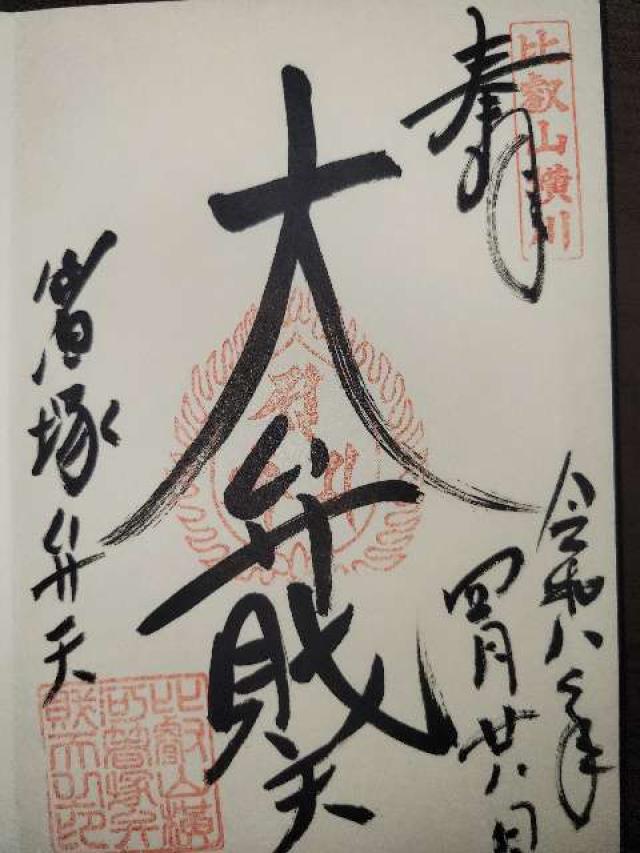 比叡山横川
奉拝
大弁財天
箸塚弁天
令和八年
四月廿八日
比叡山横
川箸塚弁
財天之印